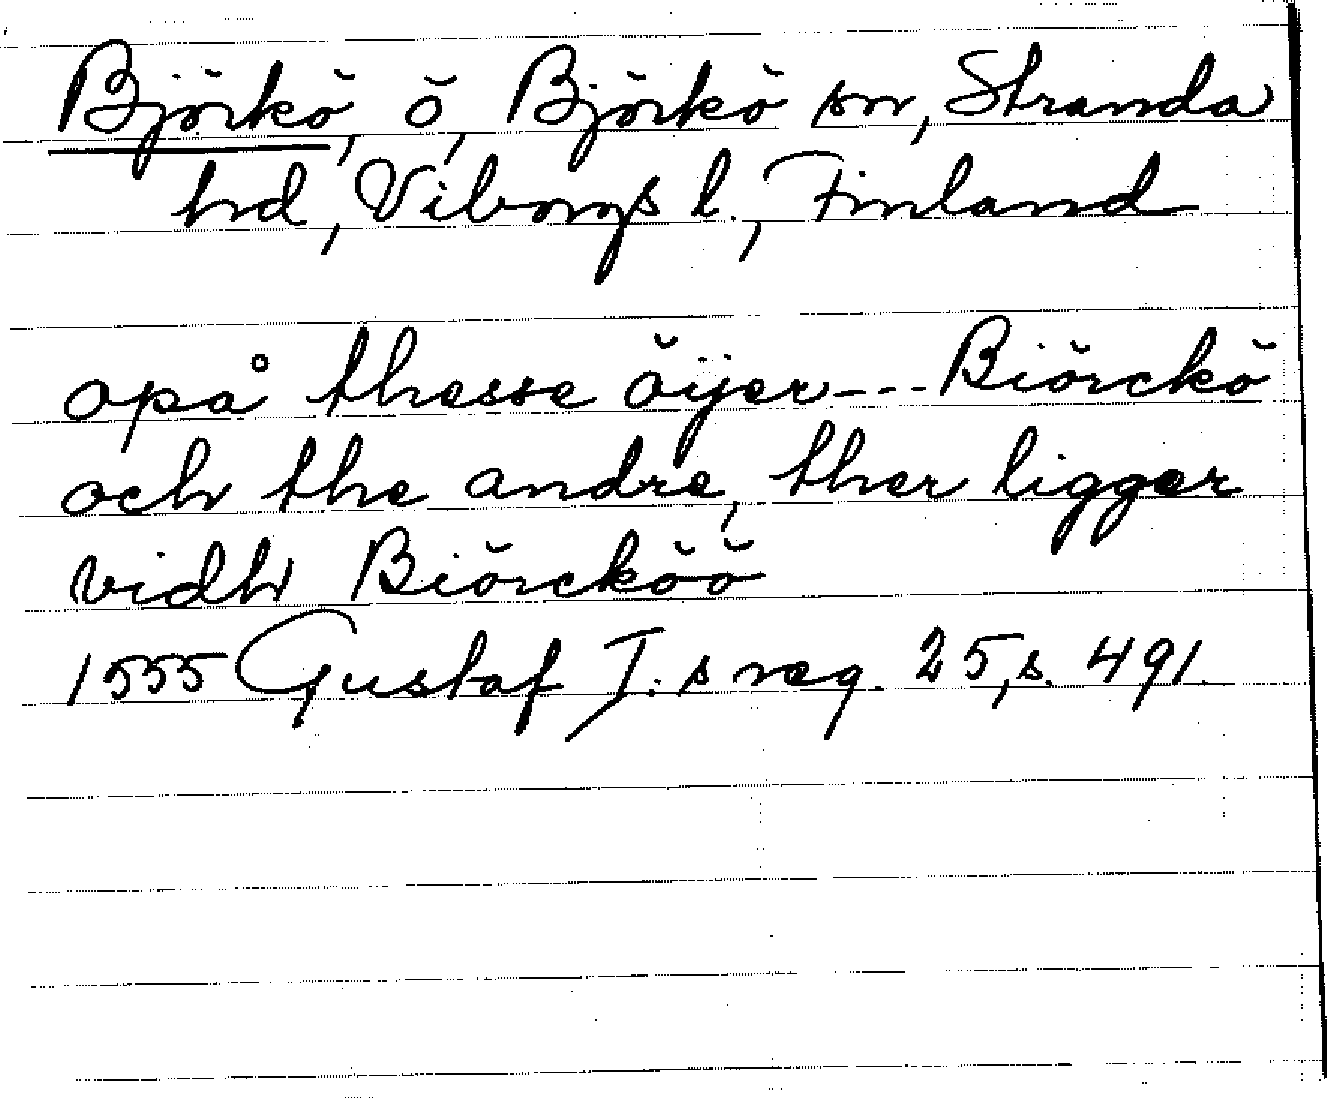 Björkö, ö, Björkö sn, Stranda
hd, Viborgs l., Finland
opå thesse öijer --- Biörckö
och the andre, ther ligger
vidh Biörcköö
1555 Gustaf I:s reg. 25, s. 491.